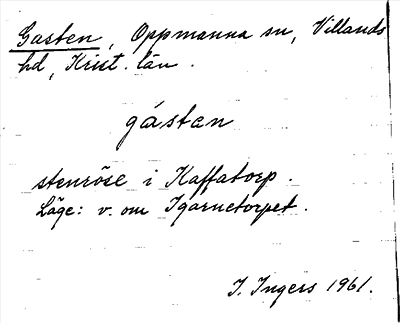 Gasten, Oppmanna sn, Villands
hd, Krist. län.
gásten
stenröse i Kaffatorp.
Läge: v. om Igarnetorpet.
I. Ingers 1961.